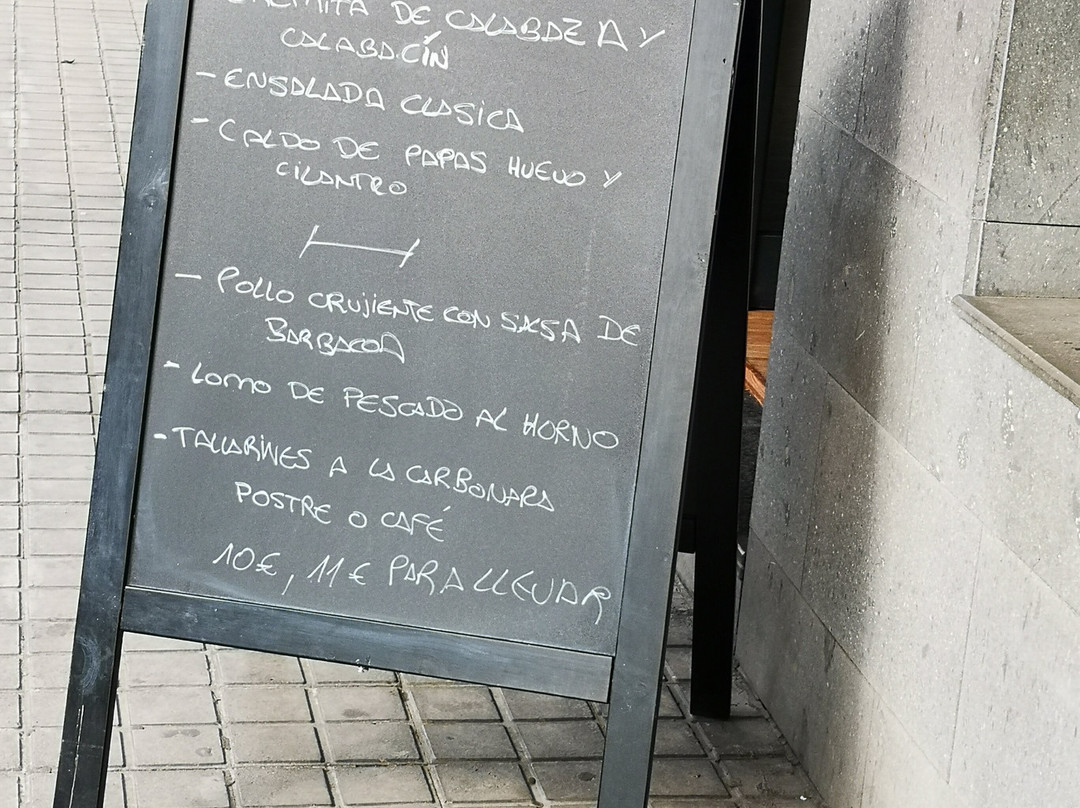 CREMITA DE CALABAZA Y
CALABACÍN
- ENSALADA CLASICA
- CALDO DE PAPAS HUEVO Y
CILANTRO
- POLLO CRUJIENTE CON SALSA DE
BARBACOA
- LOMO DE PESCADO AL HORNO
- TALLARINES A LA CARBONARA
POSTRE O CAFÉ
10€, 11€ PARA LLEVAR